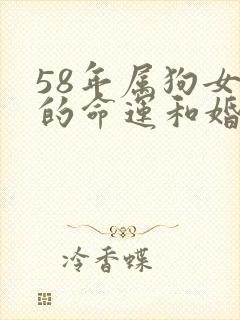 58年属狗女
的命运和婚
冷香蝶